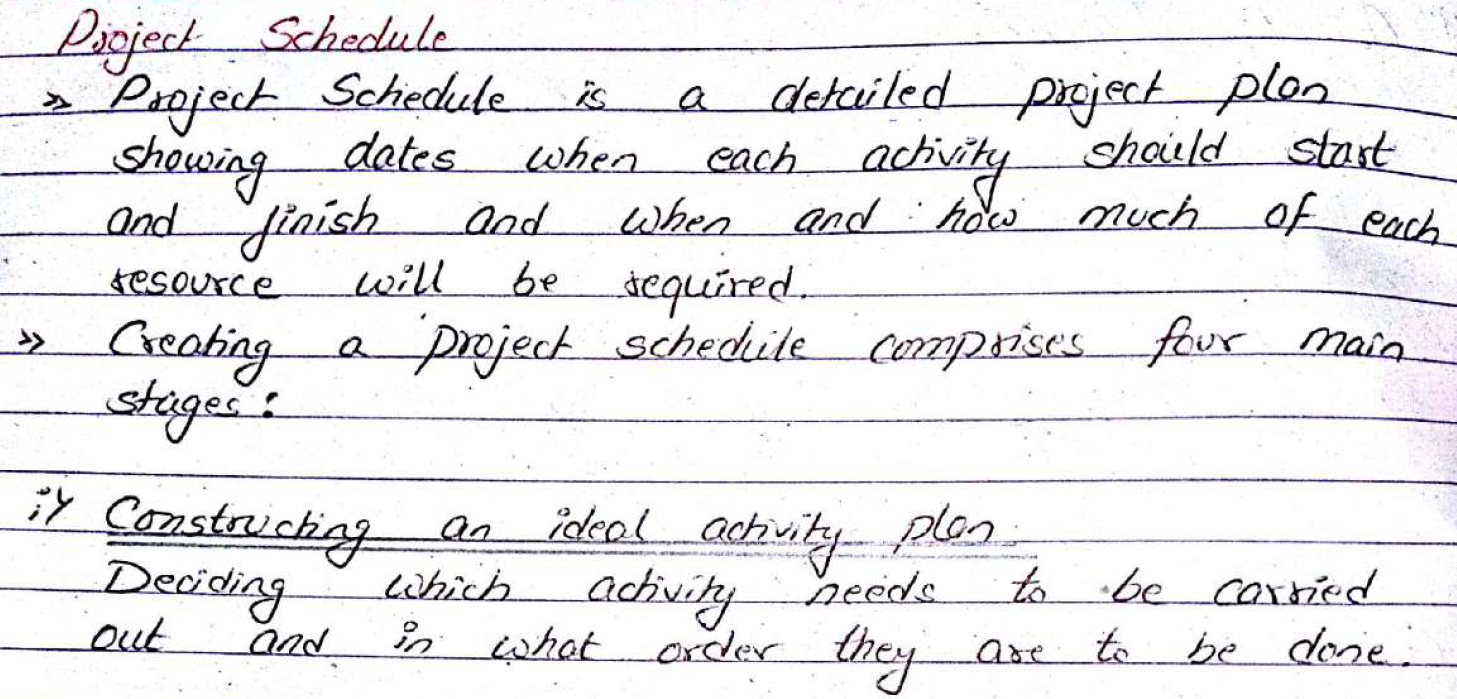 Project Schedule
» Project Schedule is a detailed project plan
showing dates when each activity should start
and finish and when and how much of each
resource will be required.
» Creating a project schedule comprises four main
stages:
i) Constructing an ideal activity plan
Deciding which activity needs to be carried
out and in what order they are to be done.